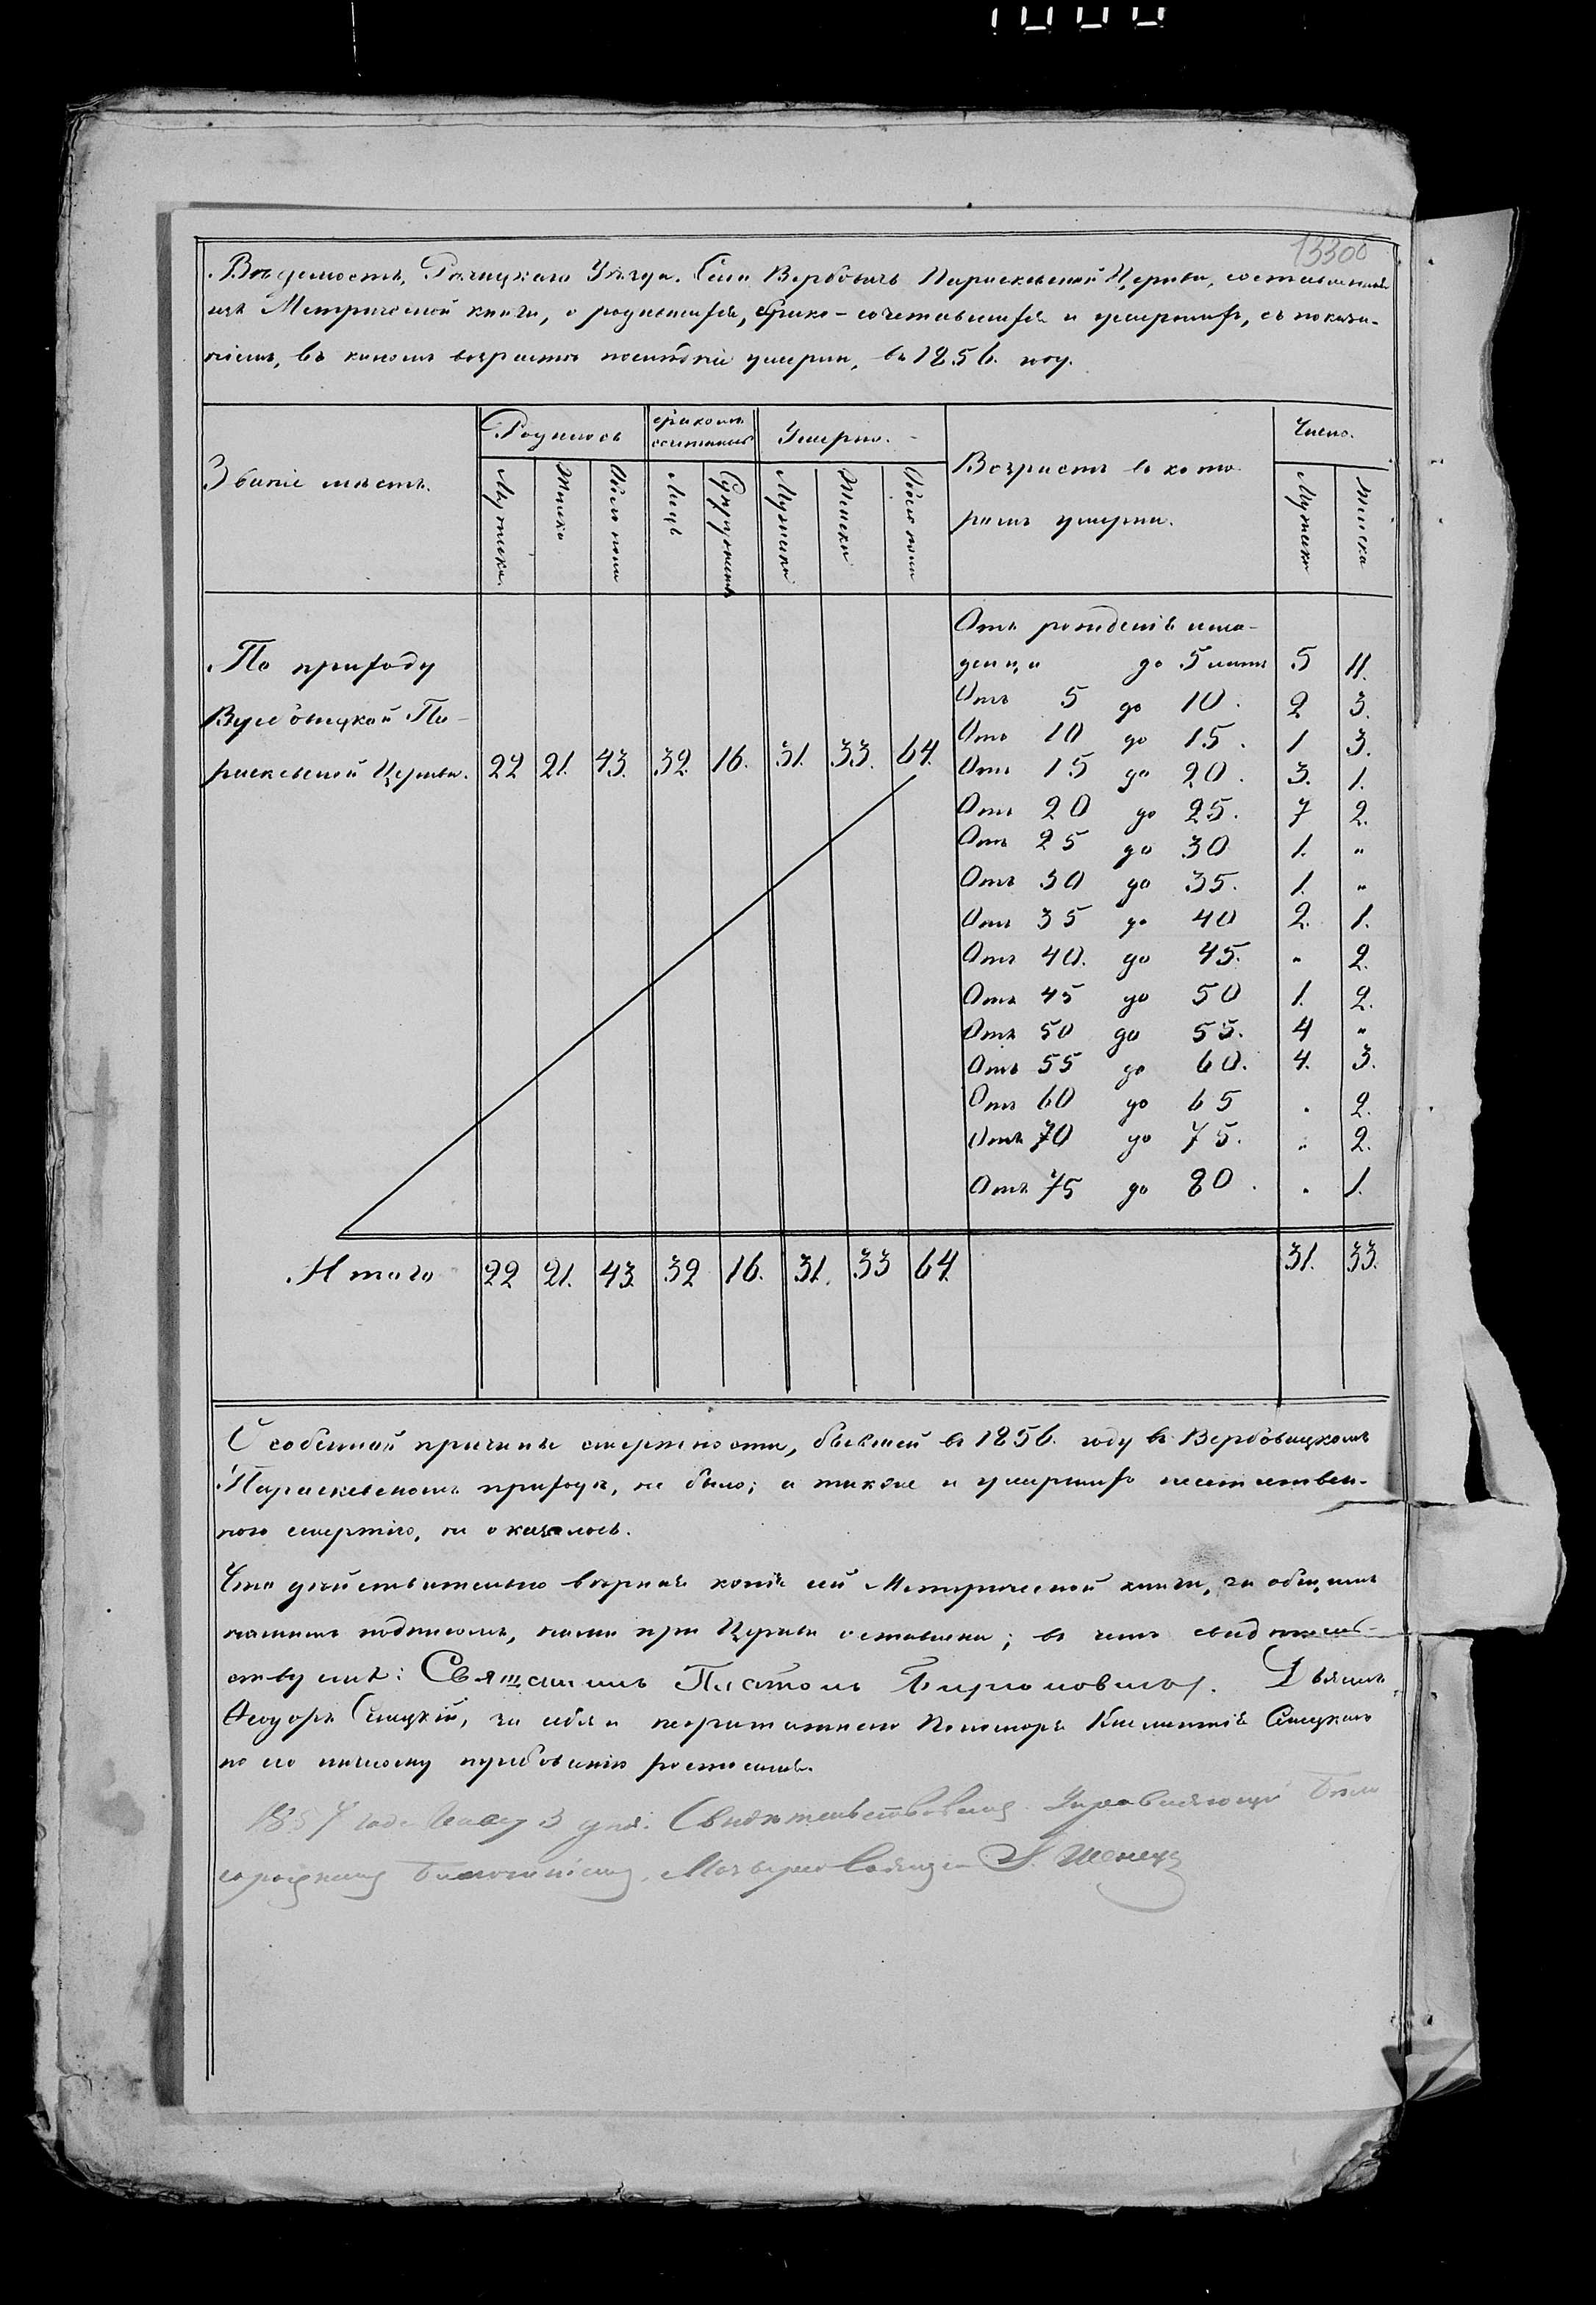 13300
Вѣдомость, Рѣчицкаго Уѣзда. Села Вербовичь Параскевской Церкви, составленная
изъ Метрической книги, о родившихся, брако-сочетавшихся и умершихъ, съ показа-
ніемъ, въ какомъ возрастѣ послѣдніе умерли, въ 1856. году.
Званіе мѣстъ.
Родилось
бракомъ
сочеталось
Умерло.
Возрастъ въ кото-
ромъ умерли.
Число.
Мужеска.
Женска
Обоего пола
Лицъ
Супружествъ
Мужеска
Женска
Обоего пола
Мужеска
Женска
По приходу
Вербовицкой Па-
раскевской Церкви. 22 21. 43. 32. 16. 31. 33. 64.
Отъ рожденія мла-
денца до 5 летъ 5 11.
Отъ 5 до 10. 2 3.
Отъ 10 до 15. 1 3.
Отъ 15 до 20. 3. 1.
Отъ 20 до 25. 7 2.
Отъ 25 до 30 1. "
Отъ 30 до 35. 1. "
Отъ 35 до 40 2. 1.
Отъ 40. до 45. " 2.
Отъ 45 до 50 1. 2.
Отъ 50 до 55. 4 "
Отъ 55 до 60. 4. 3.
Отъ 60 до 65 " 2.
Отъ 70 до 75. " 2.
Отъ 75 до 80. " 1.
Итого 22 21. 43. 32 16. 31. 33 64. 31. 33.
Особенной причины смертности, бывшей въ 1856. году въ Вербовицкомъ
Параскевскомъ приходѣ, не было; а также и умершихъ неестествен-
ною смертію, не оказалось.
Что дѣйствительно вѣрная копія сей Метрической книги, за общимъ
нашимъ подписомъ, нами при Церкви оставлена; въ чемъ свидѣтель-
ствуемъ: Священникъ Платонъ Дьячекъ
Ѳеодоръ за себя и неграмотнаго Пономаря Климентія
по его личному прозбованію росписался.
1857 года 3 дня. Свидѣтельствовалъ Управляющій
Благочиніемъ,